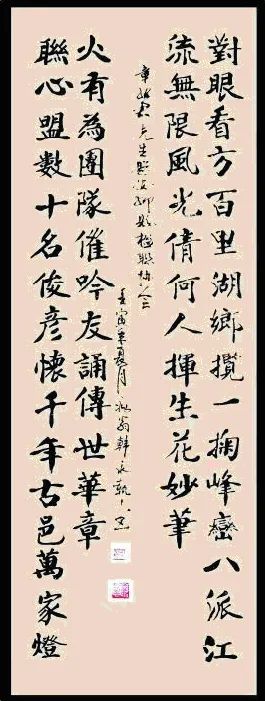 對眼看方百里湖鄉攬一掬峰巒八派江
流無限風光倩何人揮生花妙筆
聯心盟數十名俊彥懷千年古邑萬家燈
火有為團隊催吟友誦傳世華章
先生題
壬寅年夏月